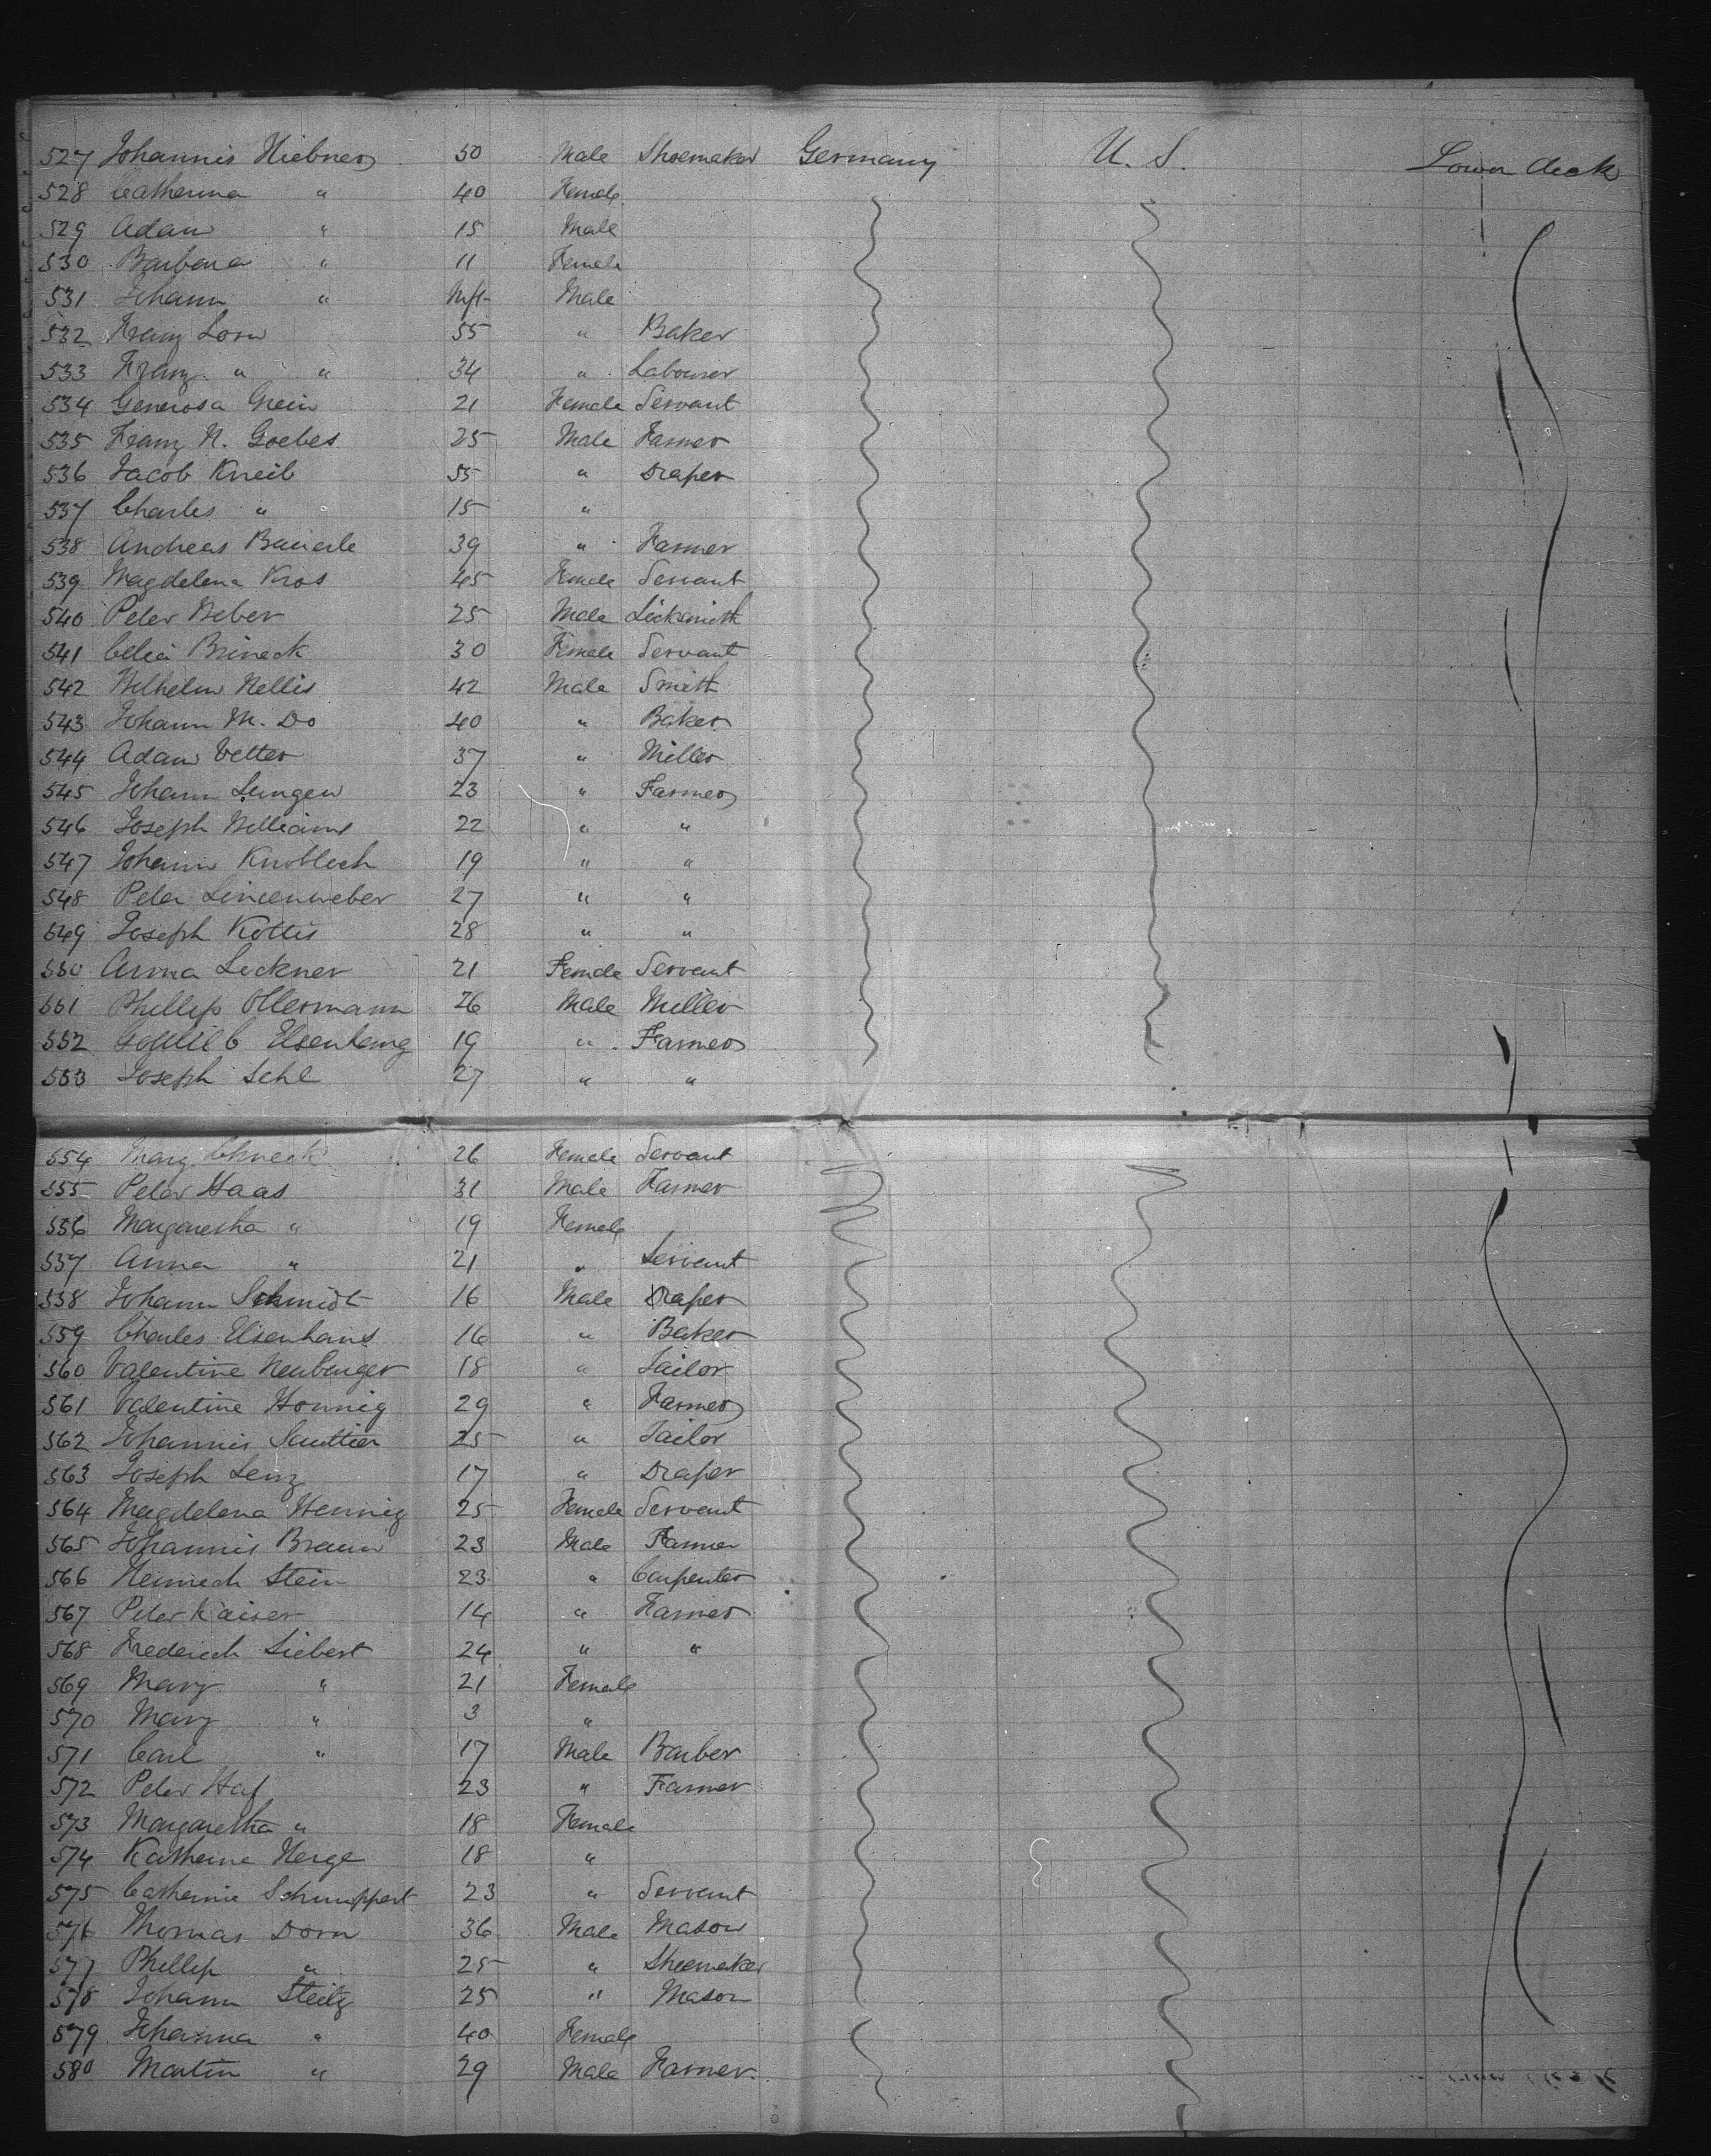 527 Johannis Hiebner 50 Male Shoemaker Germany U. S. Lower deck
528 Catherina " 40 Female
529 Adam " 15 Male
530 Barbara " 11 Female
531 Johann " Inft Male
532 Franz Lorn 55 " Baker
533 Franz " " 34 " Labourer
534 Generosa Grein 21 Female Servant
535 Franz N. Goebes 25 Male Farmer
536 Jacob Kneib 55 " Draper
537 Charles " 15 "
538 Andreas Bauerle 39 " Farmer
539 Magdelena Kros 45 Female Servant
540 Peter Weber 25 Male Locksmith
541 Celia Brineck 30 Female Servant
542 Wilhelm Nellis 42 Male Smith
543 Johann M. Do 40 " Baker
544 Adam Vetter 37 " Miller
545 Johann Lungen 23 " Farmer
546 Joseph Williams 22 " "
547 Johann Knobloch 19 " "
548 Peter Linceenweber 27 " "
549 Joseph Kottis 28 " "
550 Anna Leckner 21 Female Servant
551 Phillip Ollermann 26 Male Miller
552 Gottlieb 19 " Farmer
553 Joseph Sehl 27 " "
554 Mary 26 Female Servant
555 Peter Haas 31 Male Farmer
556 Margaretha " 19 Female
557 Anna " 21 " Servant
558 Johann Schmidt 16 Male Draper
559 Charles Elsenhans 16 " Baker
560 Valentine Neuburger 18 " Tailor
561 Valentine Honnig 29 " Farmer
562 Johannis Sauttier 25 " Tailor
563 Joseph Lenz 17 " Draper
564 Magdelena Hennig 25 Female Servant
565 Johannis Braun 23 Male Farmer
566 Heinrich Stein 23 " Carpenter
567 Peter Kaiser 14 " Farmer
568 Frederich Liebert 24 " "
569 Mary " 21 Female
570 Mary " 3 "
571 Carl " 17 Male Barber
572 Peter Haf 23 " Farmer
573 Margaretha " 18 Female
574 Katherine Herge 18 "
575 Catherine Schnuppert 23 " Servant
576 Thomas Dorn 36 Male Mason
577 Phillip " 25 " Shoemaker
578 Johann Steitz 25 " Mason
579 Johanna " 40 Female
580 Martin " 29 Male Farmer